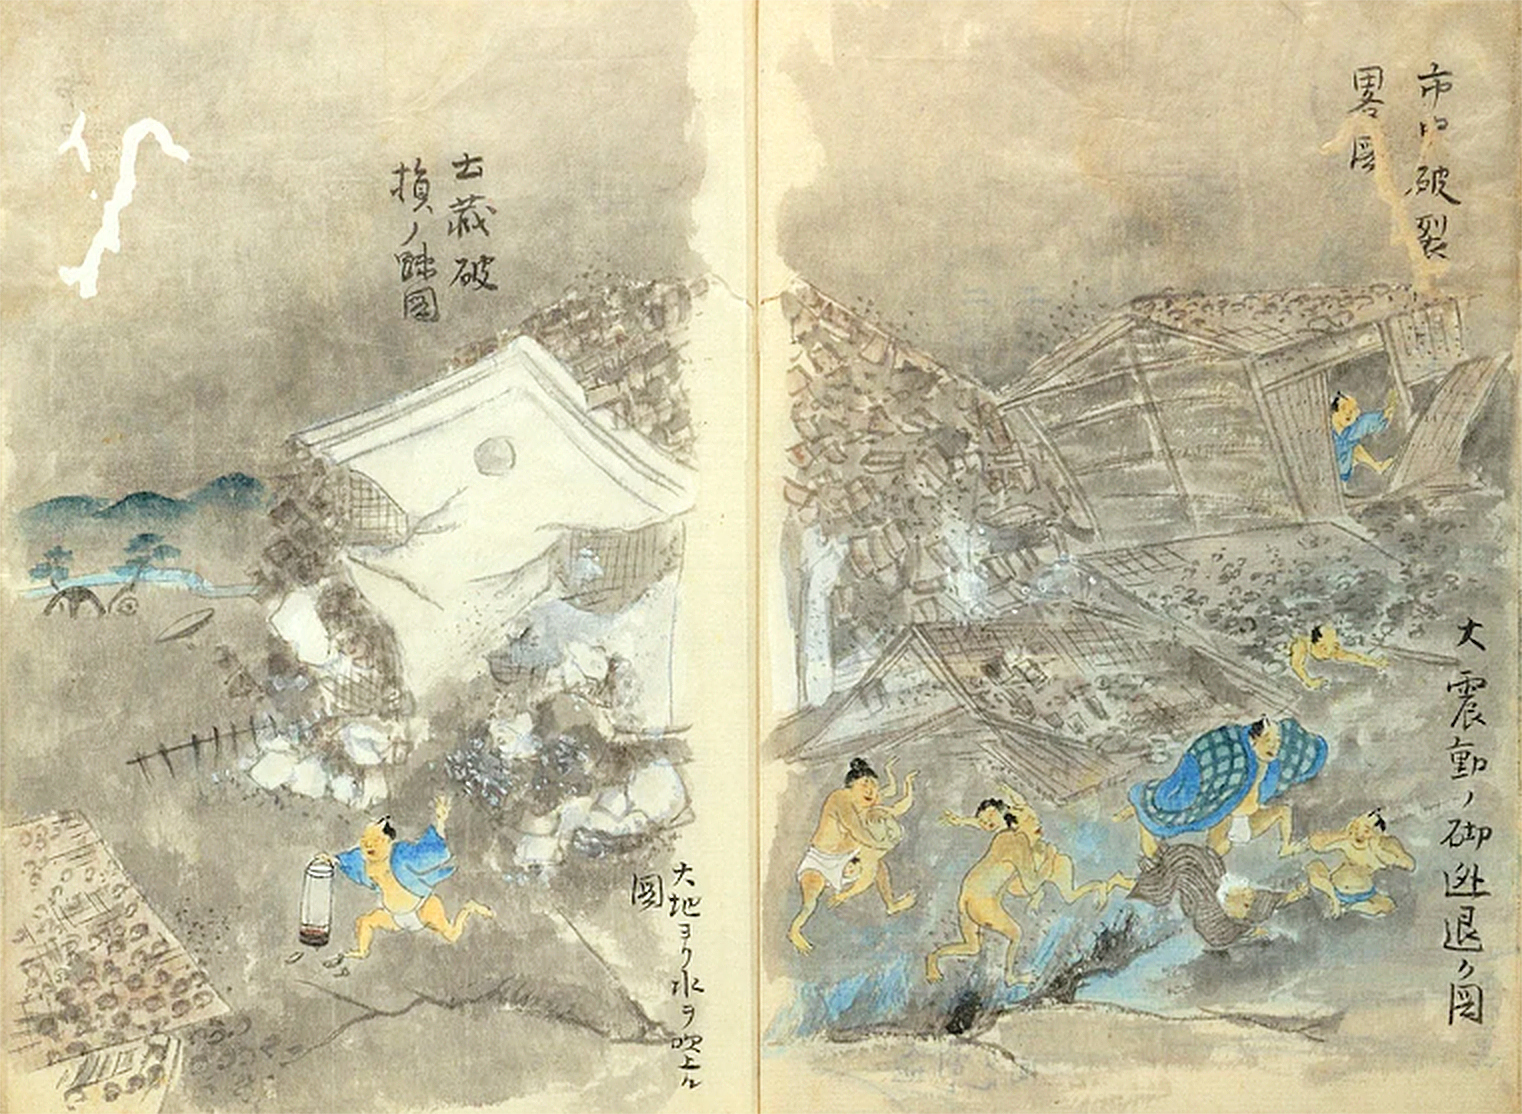 市破裂
畧図
大震動ノ砌迯退ク図
土蔵破
損ノ跡図
大地ヨリ水ヲ吹上ル
図